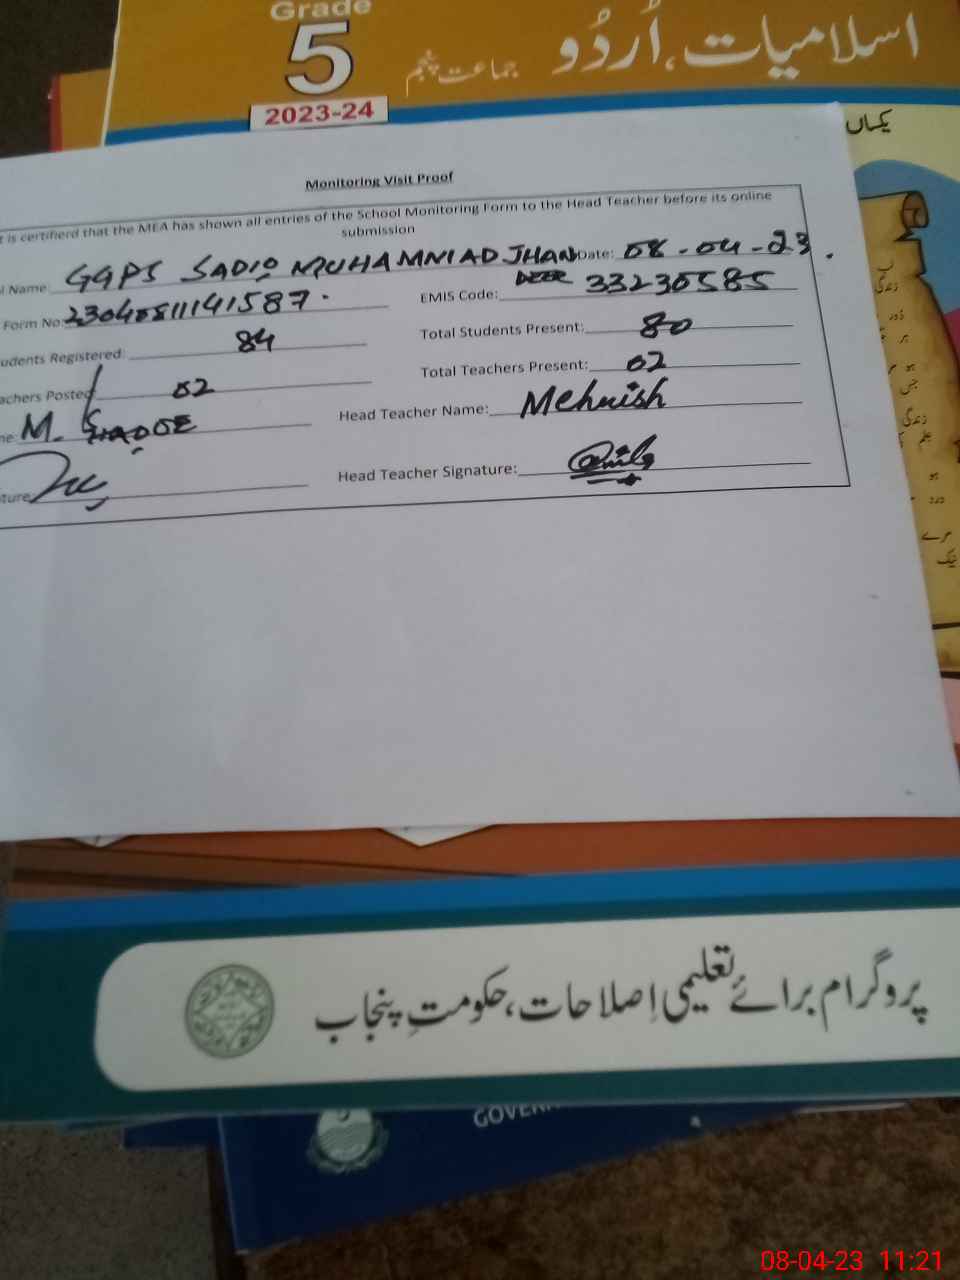 Grade
5
2023-24
اسلامیات، اُردُو
جماعت پنجم
یکساں
Monitoring Visit Proof
t is certifierd that the MEA has shown all entries of the School Monitoring Form to the Head Teacher before its online
submission
l Name: GGPS SADIQ MUHAMMAD JHAN Date: 08-04-23.
Form No: 2304081141587. EMIS Code: 33230585
udents Registered: 84 Total Students Present: 80
achers Posted 02 Total Teachers Present: 02
ne: M. Head Teacher Name: Mehwish
ture Head Teacher Signature:
زندگی
دُور
ہر
ہو
جس
زندگی
علم
ہو
درد
مرے
نیک
پروگرام برائے تعلیمی اِصلاحات، حکومتِ پنجاب
GOVERN
08-04-23 11:21